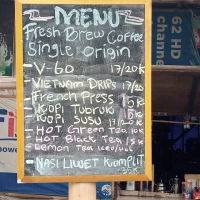 MENU
Fresh Brew Coffee
Single origin
- V-60 17/20K
VIETNAM DRIPS 17/20
French Press
KOPI TUBRUK 15K
KOPI SUSU 17/20K
- HOT Green Tea 10K
- HOT Black Tea 15K
- Lemon Tea iced/
- NASI LIWET Komplit
35K
62 HD
channel